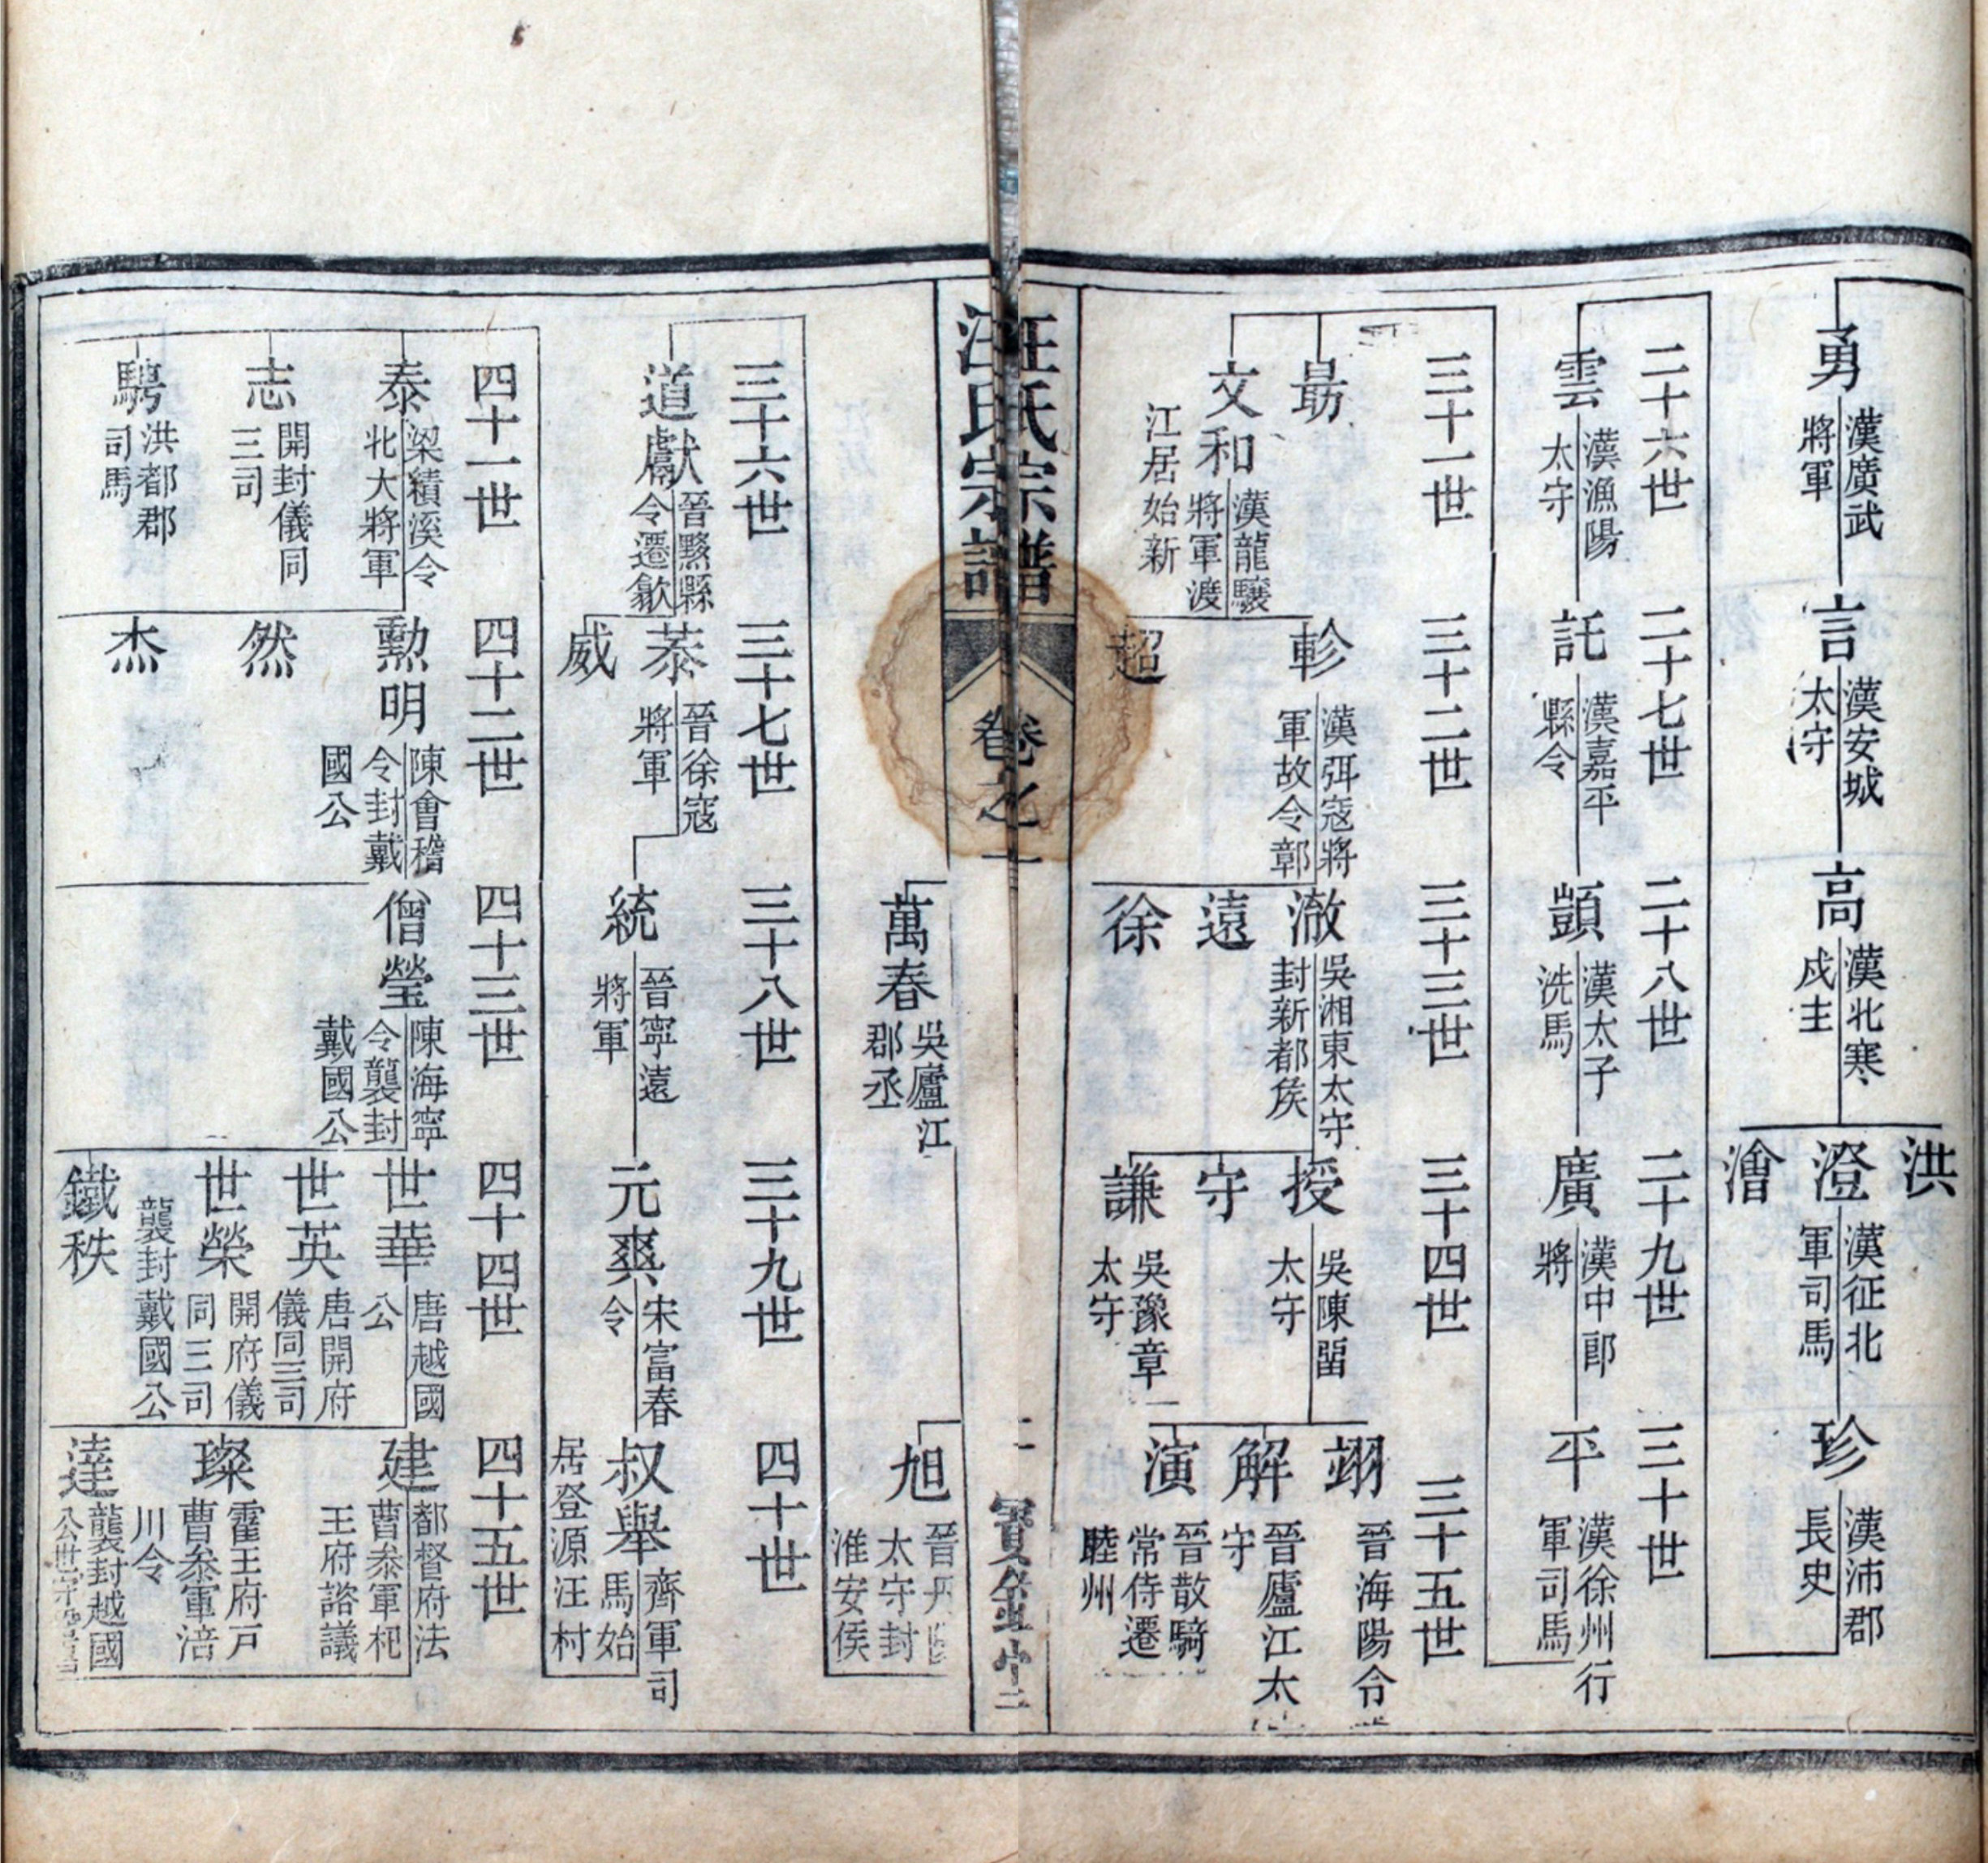 勇
漢廣武
將軍
言
漢安城
太守
高
漢北寒
戍主
洪
澄
漢征北
軍司馬
澮
珍
漢沛郡
長史
二十六世
二十七世
二十八世
二十九世
三十世
雲
漢漁陽
太守
託
漢嘉平
縣令
顗
漢太子
洗馬
廣
漢中郎
將
平
漢徐州行
軍司馬
三十一世
三十二世
三十三世
三十四世
三十五世
勗
文和
漢龍驤
將軍渡
江居始新
軫
漢弭寇將
軍故令鄣
超
澈
吳湘東太守
封新都侯
遠
徐
授
吳陳畱
太守
守
謙
吳豫章
太守
翊
晉海陽令
解
晉廬江太
守
演
晉散騎
常侍遷
睦州
汪氏宗譜
卷之一
二
實錄堂
萬春
吳廬江
郡丞
旭
太守封
淮安侯
三十六世
三十七世
三十八世
三十九世
四十世
道獻
晉黟縣
令遷歙
菾
晉徐寇
將軍
威
統
晉寧遠
將軍
元爽
宋富春
令
叔舉
齊軍司
馬始
居登源汪村
四十一世
四十二世
四十三世
四十四世
四十五世
泰
梁績溪令
北大將軍
志
開封儀同
三司
騁
洪都郡
司馬
勲明
陳會稽
令封戴
國公
然
杰
僧瑩
陳海寧
令襲封
戴國公
世華
唐越國
公
世英
唐開府
儀同三司
世榮
開府儀
同三司
襲封戴國公
鐵秩
建
都督府法
曹叅軍杞
王府諮議
璨
霍王府戸
曹叅軍涪
川令
達
襲封越國